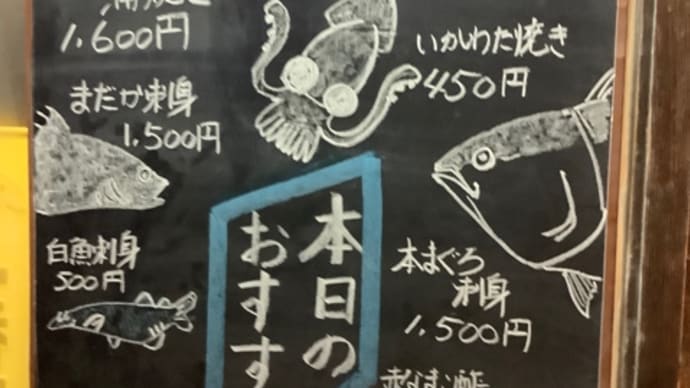 1,600円
まだか刺身
1,500円
白魚刺身
500円
本日の
おすす
いかわた焼き
450円
本まぐろ
刺身
1,500円